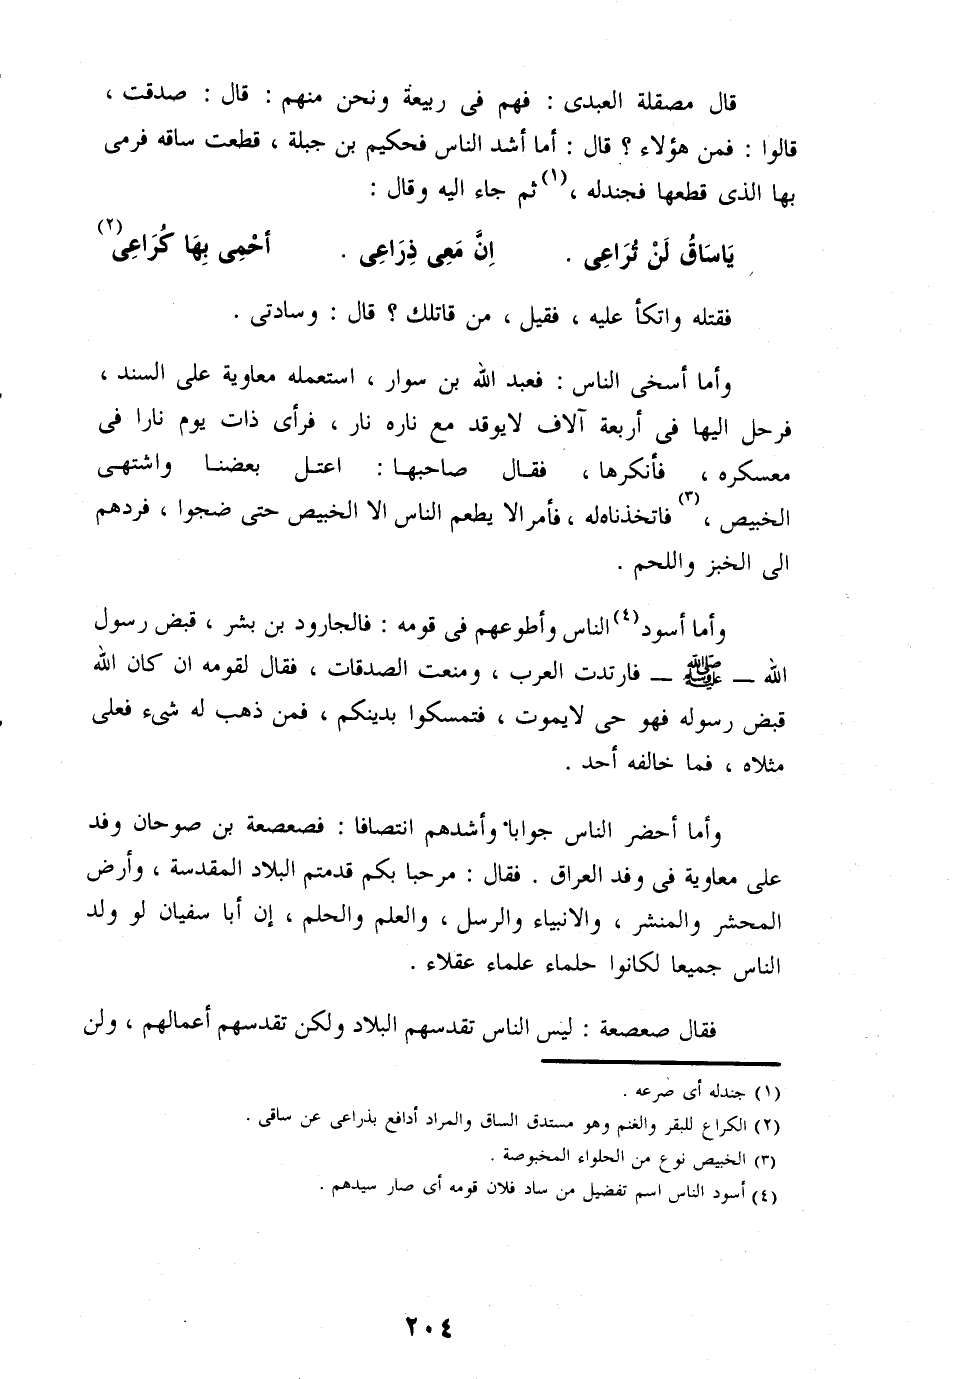 قال مصقلة العبدى : فهم فى ربيعة ونحن منهم : قال : صدقت ،
قالوا : فمن هؤلاء ؟ قال : أما أشد الناس فحكيم بن جبلة ، قطعت ساقه فرمى
بها الذى قطعها فجندله ،(١) ثم جاء اليه وقال :
يَاسَاقُ لَنْ تُرَاعِى . اِنَّ مَعِى ذِرَاعِى . أحْمِى بِهَا كُرَاعِى(٢)
فقتله واتكأ عليه ، فقيل ، من قاتلك ؟ قال : وسادتى .
وأما أسخى الناس : فعبد الله بن سوار ، استعمله معاوية على السند ،
فرحل اليها فى أربعة آلاف لايوقد مع ناره نار ، فرأى ذات يوم نارا فى
معسكره ، فأنكرها ، فقال صاحبها : اعتل بعضنا واشتهى
الخبيص ،(٣) فاتخذناه له ، فأمر الا يطعم الناس الا الخبيص حتى ضجوا ، فردهم
الى الخبز واللحم .
وأما أسود(٤) الناس وأطوعهم فى قومه : فالجارود بن بشر ، قبض رسول
الله ــ ﷺ ــ فارتدت العرب ، ومنعت الصدقات ، فقال لقومه ان كان الله
قبض رسوله فهو حى لايموت ، فتمسكوا بدينكم ، فمن ذهب له شىء فعلى
مثلاه ، فما خالفه أحد .
وأما أحضر الناس جوابا وأشدهم انتصافا : فصعصعة بن صوحان وفد
على معاوية فى وفد العراق . فقال : مرحبا بكم قدمتم البلاد المقدسة ، وأرض
المحشر والمنشر ، والانبياء والرسل ، والعلم والحلم ، إن أبا سفيان لو ولد
الناس جميعا لكانوا حلماء علماء عقلاء .
فقال صعصعة : ليس الناس تقدسهم البلاد ولكن تقدسهم أعمالهم ، ولن
(١) جندله أى صرعه .
(٢) الكراع للبقر والغنم وهو مستدق الساق والمراد أدافع بذراعى عن ساقى .
(٣) الخبيص نوع من الحلواء المخبوصة .
(٤) أسود الناس اسم تفضيل من ساد فلان قومه أى صار سيدهم .
٢٠٤